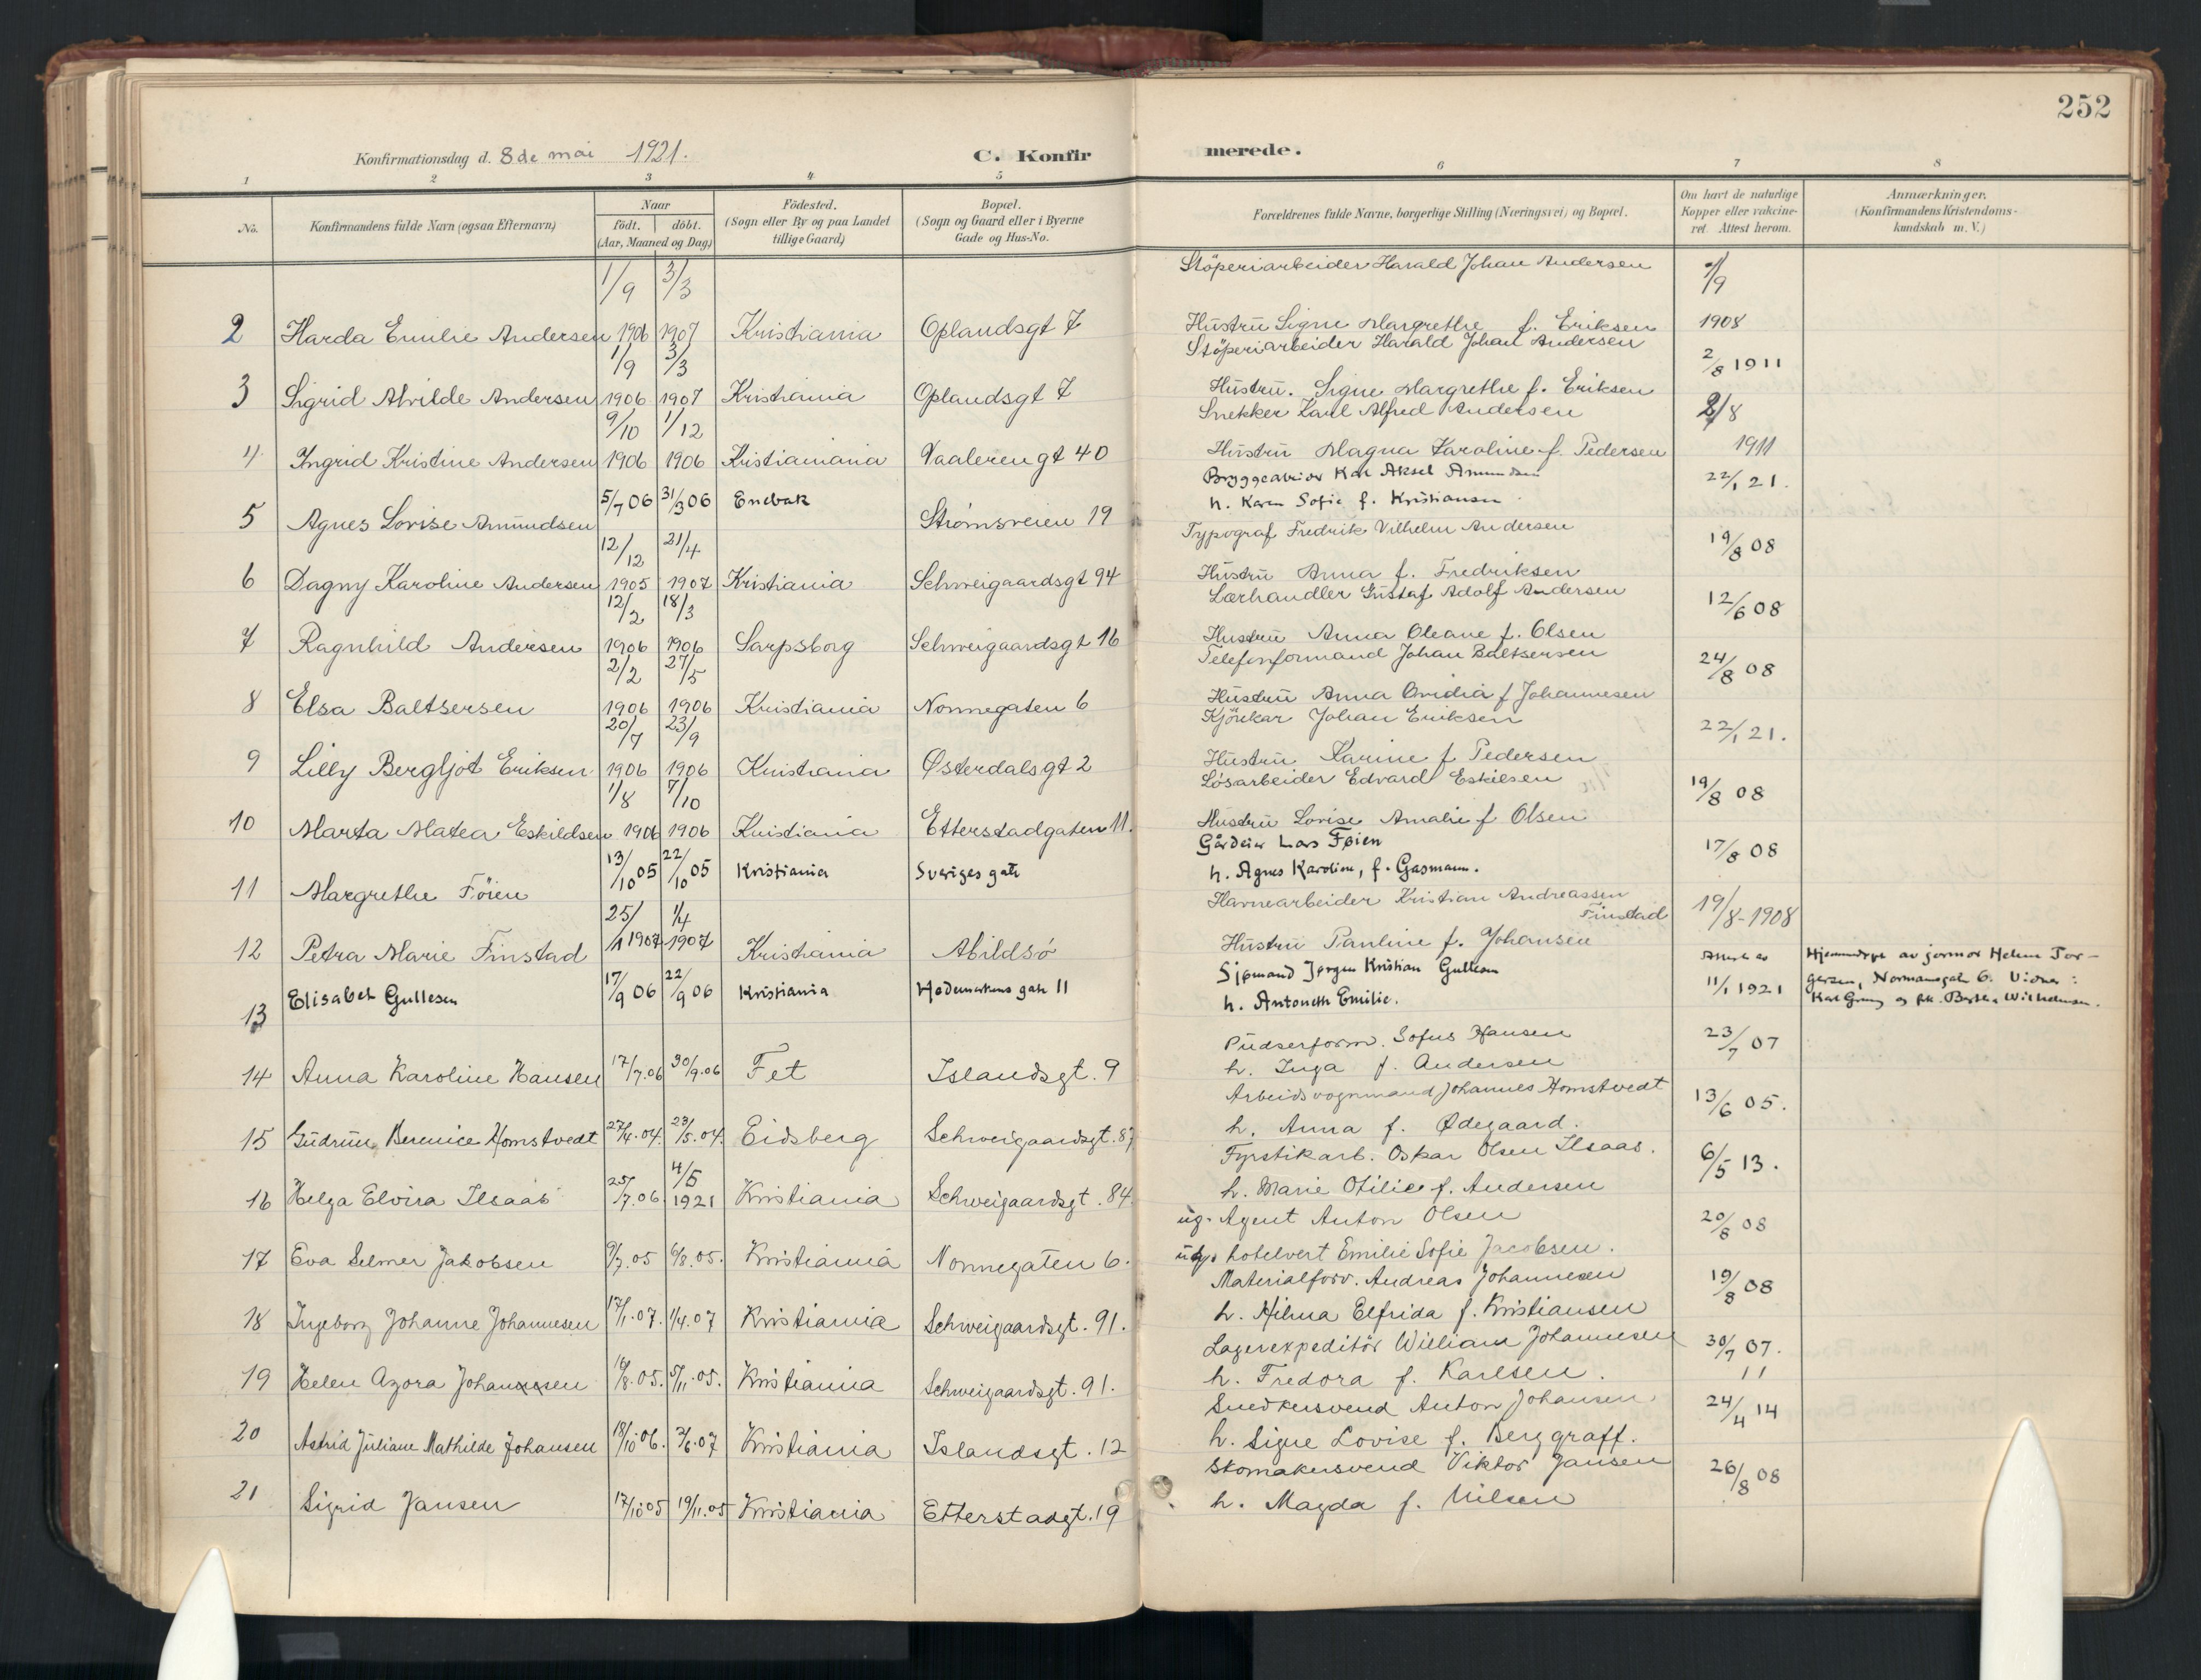 252
Konfirmationsdag d. 8de mai 1921.
C. Konfirmerede.
1 2 3 4 5 6 7 8
No.
Konfirmandens fulde Navn (ogsaa Efternavn)
Naar
født. døbt.
(Aar, Maaned og Dag)
Födested.
(Sogn eller By og paa Landet
tillige Gaard)
Bopæl.
(Sogn og Gaard eller i Byerne
Gade og Hus-No.
Forældrenes fulde Navne, borgerlige Stilling (Næringsvei) og Bopæl.
Om havt de naturlige
Kopper eller vakcine-
ret. Attest herom.
Anmærkninger.
(Konfirmandens Kristendoms-
kundskab m. V.)
1/9 3/3 Stöperiarbeider Harald Johan Andersen /9
2 Harda Emilie Andersen 1906 1907 Kristiania Oplandsgt 7 Hustru Signe Margrethe f. Eriksen 1908
1/9 3/3 Stöperiarbeider Harald Johan Andersen 2/8 1911
3 Sigrid Alvilde Andersen 1906 1907 Kristiania Oplandsgt 7 Hustru. Signe Margrethe f. Eriksen
9/10 1/12 Snekker Karl Alfred Andersen 2/8
4 Ingrid Kristine Andersen 1906 1906 Kristianiania Vaalerengt 40 Hustru Magna Karoline f. Pedersen 1911
5/7 06 31/3 06 Enebak Karl Aksel Amundsen 22/1 21.
5 Agnes Lovise Amundsen Strømsveien 19 h. Karen Sofie f. Kristiansen
12/12 21/4 Typograf Fredrik Vilhelm Andersen 19/8 08
6 Dagny Karoline Andersen 1905 1907 Kristiania Schweigaardsgt 94 Hustru Anna f. Fredriksen
12/2 18/3 Lærhandler Gustaf Adolf Andersen 12/6 08
7 Ragnhild Andersen 1906 1906 Sarpsborg Schweigaardsgt 16 Hustru Anna Oleane f. Olsen
2/2 27/5 Telefonformand Johan Baltsersen 24/8 08
8 Elsa Baltsersen 1906 1906 Kristiania Nonnegaten 6 Hustru Anna Ovidia f Johannesen
20/7 23/9 Kjörekar Johan Eriksen 22/1 21.
9 Lilly Bergljot Eriksen 1906 1906 Kristiania Østerdalsgt 2 Hustru Karine f Pedersen
1/8 7/10 Løsarbeider Edvard Eskilsen 19/8 08
10 Marta Matea Eskildsen 1906 1906 Kristiania Etterstadgaten 11. Hustru Lovise Amalie f Olsen
13/10 05 22/10 05 Kristiania Sveriges gate Gårdeier Lars Føien 17/8 08
11 Margrethe Föien h. Agnes Karoline, f. Gasmann.
25/ 1/4 Havnearbeider Kristian Andreassen Finstad 19/8-1908
12 Petra Marie Finstad /1 1907 1907 Kristiania Abildsø Hustru Pauline f. Johansen
13 Elisabet Gullesen 17/9 06 22/9 06 Kristiania Hedemarkens gate 11 Sjømand Jørgen Kristian Gullesen
h. Antonette Emilie.
Attest av
11/1 1921
Hjemmedøpt av jormor Helene Tor-
gersen, Normannsgate 6. Vidner:
og frk. Bertha Wilhelmsen.
14 Anna Karoline Hansen 17/7.06 30/9.06 Fet Islandsgt. 9 Pudserform. Sofus Hansen 23/7 07
h. Inga f. Andersen
15 Gudrun Berenice Homstvedt 27/4.04. 23/5.04. Eidsberg Schweigaardsgt. 87 Arbeidsvognmand Johannes Homstvedt 13/6 05.
h. Anna f. Ødegaard.
16 Helga Elvira Ilsaas 25/7.06 4/5 1921 Kristiania Schweigaardsgt. 84 Fyrstikarb. Oskar Olsen Ilsaas. 6/5 13.
h. Marie Otilie f. Andersen
17 Eva Selmer Jakobsen 9/7.05 6/8.05. Kristiania Nonnegaten 6. ug. Agent Anton Olsen 20/8 08
ug. hotelvert Emilie Sofie Jacobsen.
18 Ingeborg Johanne Johannesen 17/1.07. 1/4.07 Kristiania Schweigaardsgt. 91. Materialforv. Andreas Johannesen 19/8 08
h. Hilma Elfrida f. Kristiansen
19 Helen Azora Johannesen 16/8.05. 5/11.05. Kristiania Schweigaardsgt. 91. Lagerexpeditör William Johannesen 30/7 07.
h. Fredora f. Karlsen. 11
20 Astrid Juliane Mathilde Johansen 18/10 06. 2/6.07 Kristiania Islandsgt. 12 Snedkersvend Anton Johansen 24/4 14
h. Signe Lovise f. Berggraff.
21 Sigrid Jansen 17/10 05 19/11.05 Kristiania Etterstadgt. 19 Skomakersvend Viktor Jansen 26/8 08
h. Magda f. Nilsen